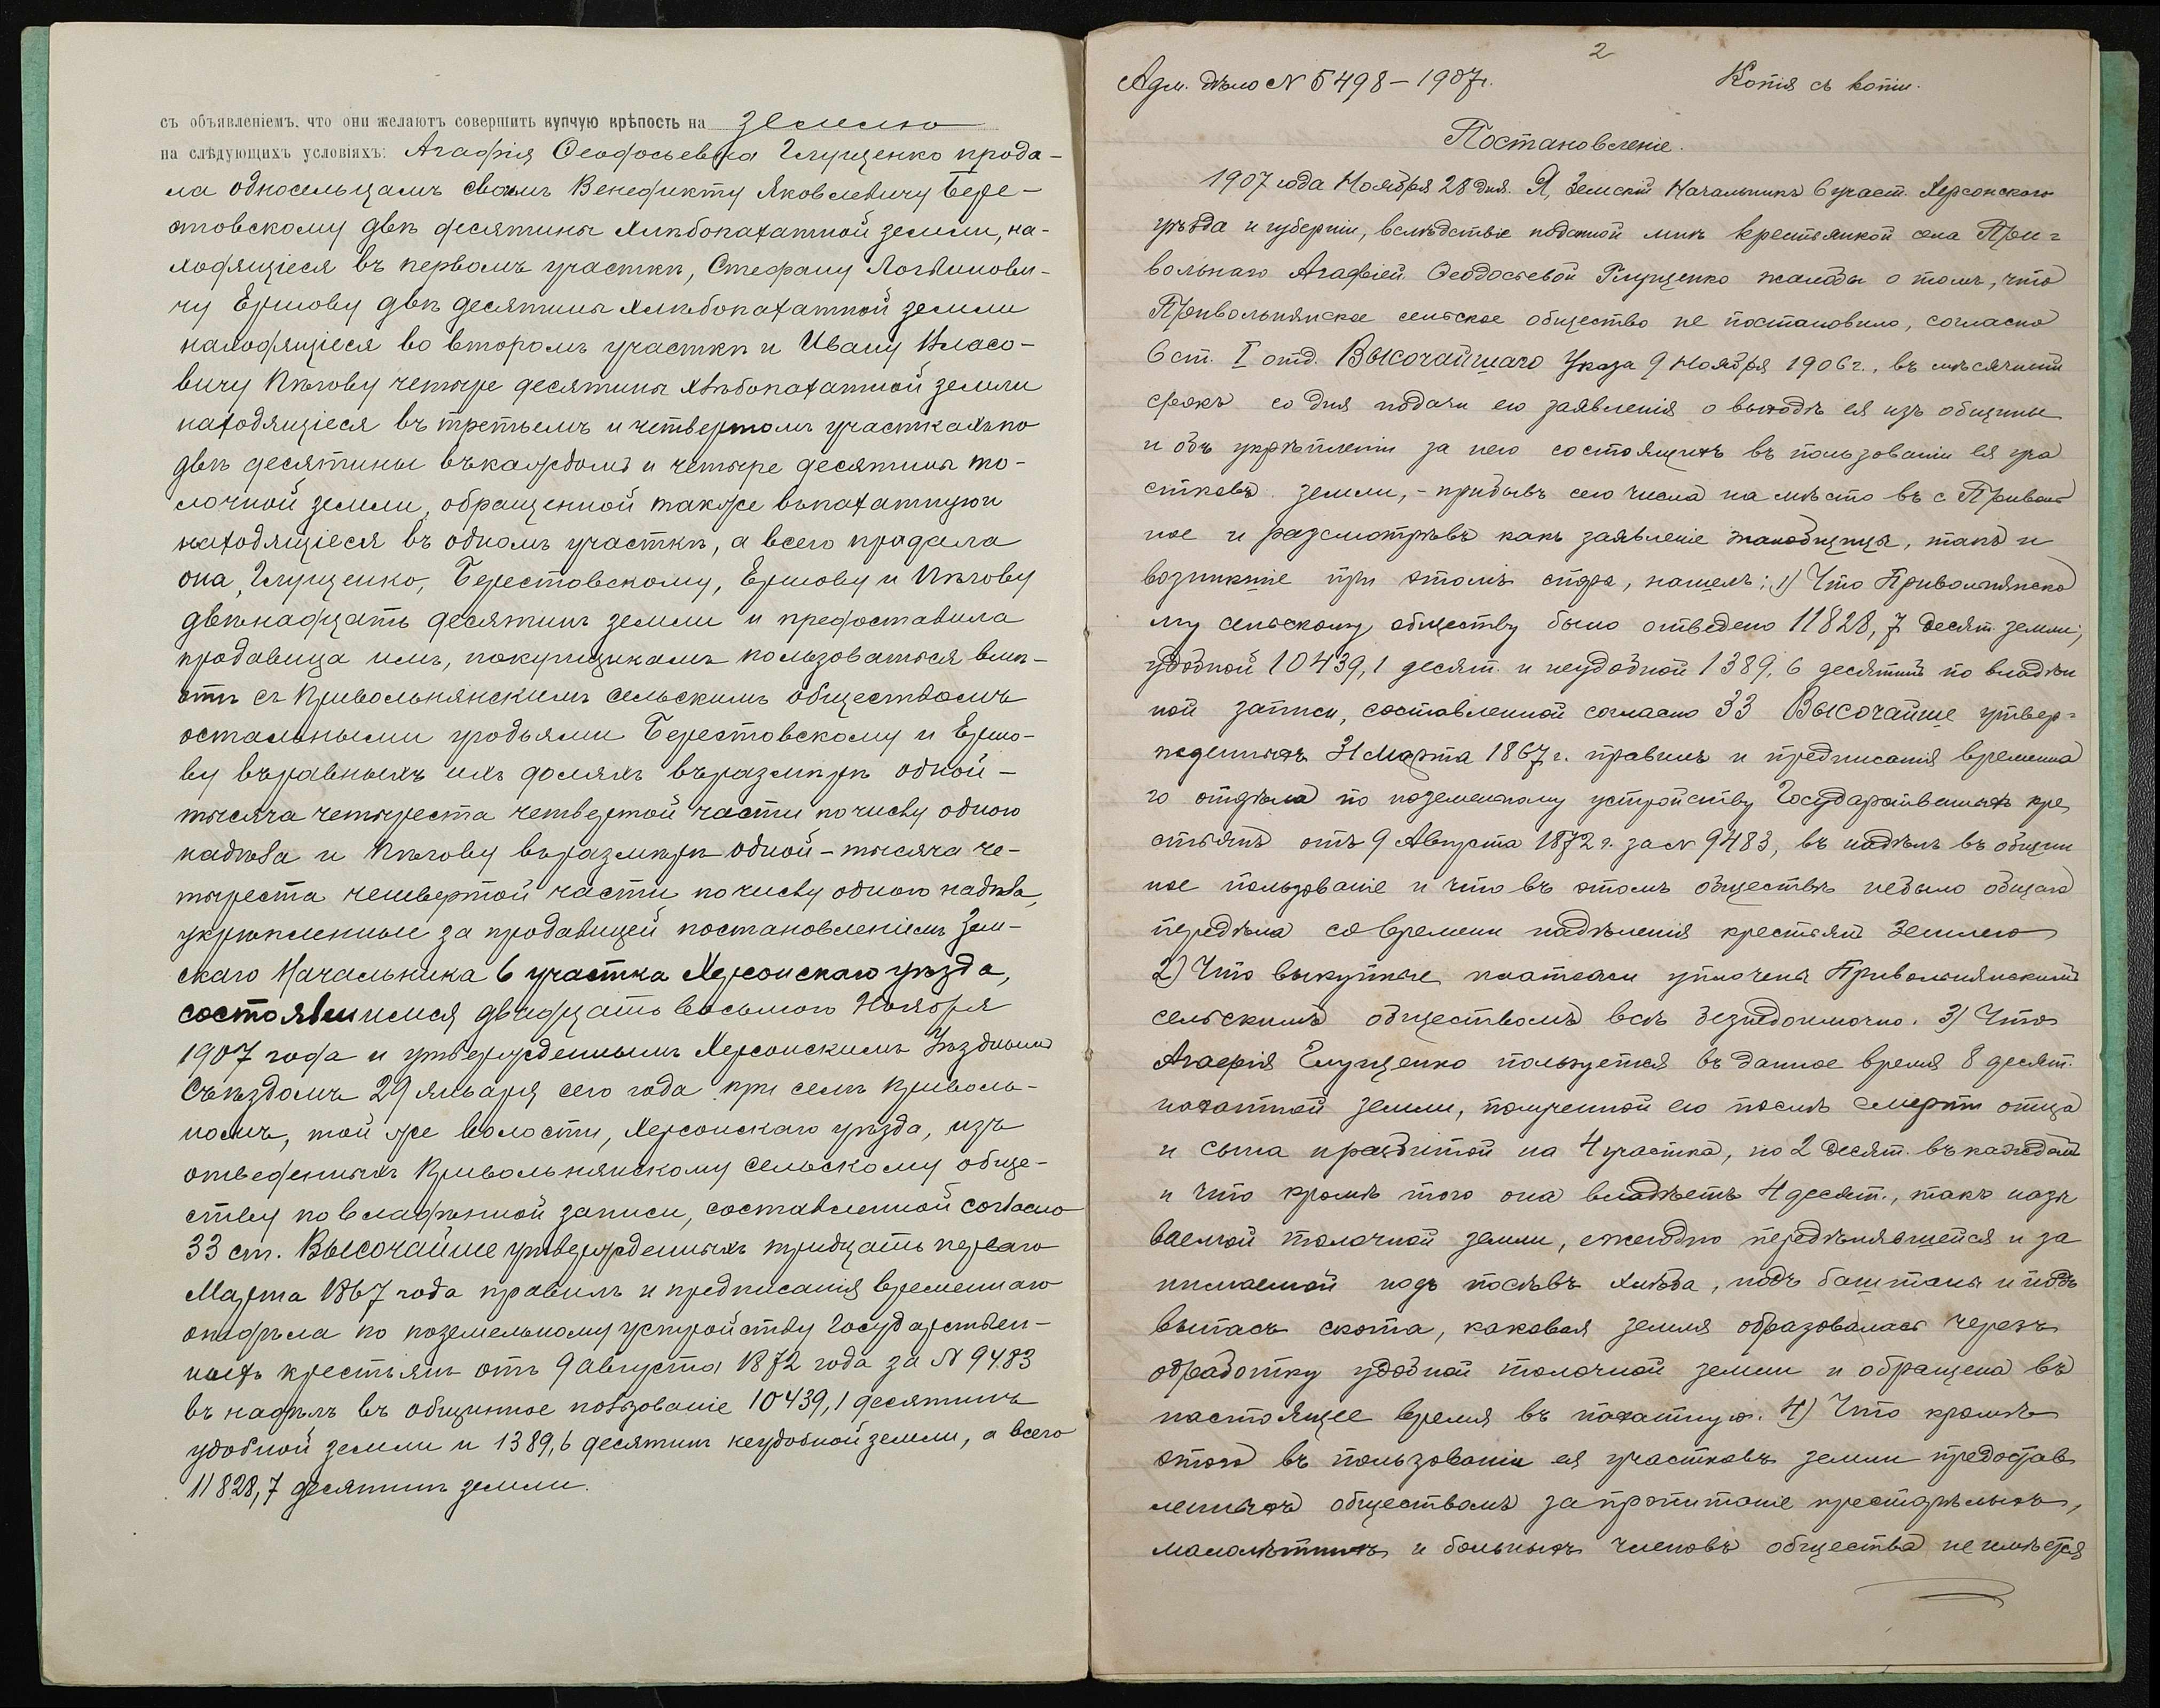 съ объявленіемъ, что они желаютъ совершить купчую крѣпость на землю
на слѣдующихъ условіяхъ: Агафія Ѳеодосьевна Глущенко прода-
ла односельцамъ своимъ Венедикту Яковлевичу Бере-
стовскому двѣ десятины хлѣбопахатной земли, на-
ходящіеся въ первомъ участкѣ, Стефану Логвинови-
чу Ершову двѣ десятины хлѣбопахатной земли
находящіеся во второмъ участкѣ и Ивану Власо-
вичу Пѣгову четыре десятины хлѣбопахатной земли
находящіеся въ третьемъ и четвертомъ участкахъ по
двѣ десятины въ каждомъ и четыре десятины то-
лочной земли, обращенной также въ пахатную и
находящіеся въ одномъ участкѣ, а всего продала
она, Глущенко, Берестовскому, Ершову и Пѣгову
двѣнадцать десятинъ земли и предоставила
продавица имъ, покупщикамъ пользоваться вмѣ-
стѣ съ Привольнянскимъ сельскимъ обществомъ
остальными угодьями Берестовскому и Ершо-
ву въ равныхъ ихъ доляхъ въ размѣрѣ одной-
тысяча четыреста четвертой части по числу одного
надѣла и Пѣгову въ размѣрѣ одной-тысяча че-
тыреста четвертой части по числу одного надѣла,
укрѣпленные за продавицей постановленіемъ Зем-
скаго Начальника 6 участка Херсонскаго уѣзда,
состоявшимся двадцать восьмого Ноября
1907 года и утвержденнымъ Херсонскимъ Уѣзднымъ
Съѣздомъ 29 января сего года при селѣ Приволь-
номъ, той же волости, Херсонскаго уѣзда, изъ
отведенныхъ Привольнянскому сельскому обще-
ству по владѣнной записи, составленной согласно
33 ст. Высочайше утвержденныхъ тридцать перваго
Марта 1867 года правилъ и предписанія временнаго
отдѣла по поземельному устройству Государствен-
ныхъ крестьянъ отъ 9 августа 1872 года за № 9483
въ надѣлъ въ общинное пользованіе 10439,1 десятинъ
удобной земли и 1389,6 десятинъ неудобной земли, а всего
11828,7 десятинъ земли.
2
Адм. дѣло № 5498-1907 г. Копія съ копіи.
Постановленіе.
1907 года Ноября 28 дня. Я, Земскій Начальникъ 6 участ. Херсонского
уѣзда и губерніи, вслѣдствіе поданной мнѣ крестьянкой села При=
вольнаго Агафіей Ѳеодосьевой Глущенко жалобы о томъ, что
Привольнянское сельское общество не постановило, согласно
6 ст. I отд. Высочайшаго Указа 9 Ноября 1906 г., въ мѣсячный
срокъ со дня подачи ею заявленія о выходѣ ея изъ общины
и объ укрѣпленіи за нею состоящихъ въ пользованіи ея уча
стковъ земли, - прибывъ сего числа на мѣсто въ с Приволь
ное и разсмотрѣвъ какъ заявленіе жалобщицы, такъ и
возникшіе при этомъ спора, нашелъ: 1) Что Привольнянско
му сельскому обществу было отведено 11828,7 десят. земли;
удобной 10439,1 десят. и неудобной 1389,6 десятинъ по владѣн
ной записи, составленной согласно 33 Высочайше утвер=
жденныхъ 31 Марта 1867 г. правилъ и предписанія временна
го отдѣла по поземельному устройству Государственныхъ кре
стьянъ отъ 9 Августа 1872 г. за № 9483, въ надѣлъ въ общин
ное пользованіе и что въ этомъ обществѣ небыло общаго
передѣла со времени надѣленія крестьянъ землею
2) Что выкупные платежи уплочены Привольнянскимъ
сельскимъ обществомъ всѣ безнедоимочно. 3) Что
Агафія Глущенко пользуется въ данное время 8 десят.
пахатной земли, полученной ею послѣ смерти отца
и сына и разбитой на 4 участка, по 2 десят. въ каждомъ
и что кромѣ того она владѣетъ 4 десят., такъ назы
ваемой толочной земли, ежегодно передѣлявшейся и за
нимаемой подъ посѣвъ хлѣба, подъ баштаны и подъ
выпасъ скота, каковая земля образовалась черезъ
обработку удобной толочной земли и обращена въ
настоящее время въ пахатную. 4) Что кромѣ
этого въ пользованіи ея участковъ земли предостав
ленныхъ обществомъ за пропитаніе престарѣлыхъ,
малолѣтнихъ и больныхъ членовъ общества не имѣется